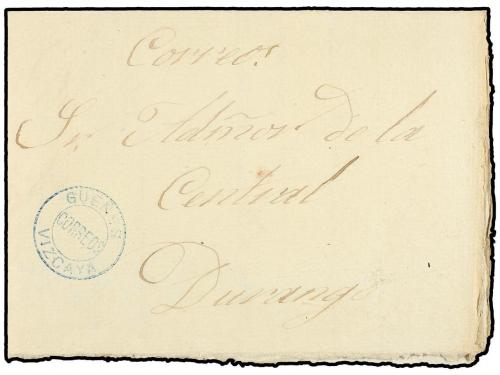 Correos
Sr. Admor de la
Central
Durango
GUEÑES
CORREOS
VIZCAYA